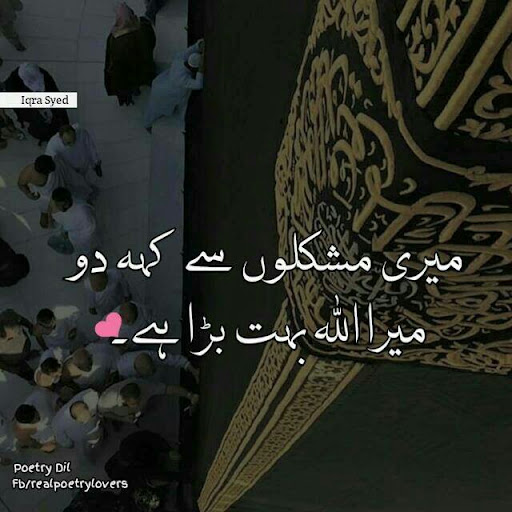 Iqra Syed
میری مشکلوں سے کہہ دو
میرا اللہ بہت بڑا ہے۔
Poetry Dil
Fb/realpoetrylovers